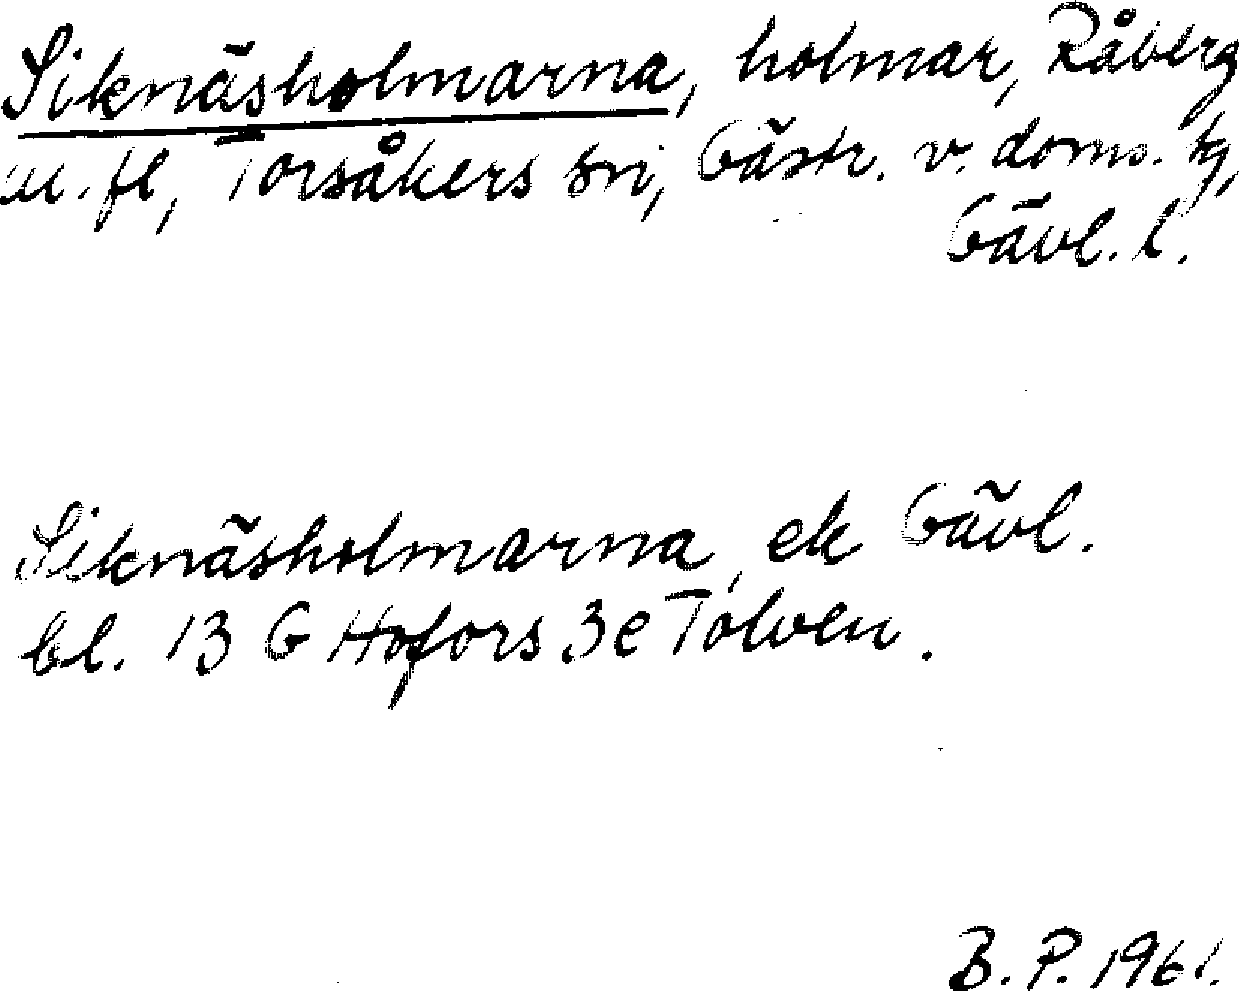 Siknäsholmarna, holmar, Råberg
m. fl, Torsåkers sn, Gästr. v. doms. tg,
Gävl. l.
Siknäsholmarna, ek Gävl.
bl. 13 G Hofors 3e Tolven.
B. P. 1961.